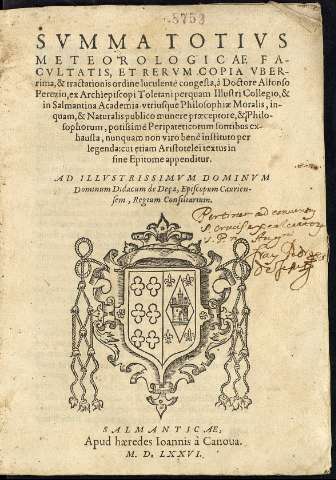 5753
SVMMA TOTIVS
METEOROLOGICAE FA-
CVLTATIS, ET RERVM COPIA VBER-
rima, & tractationis ordine luculenté congesta, à Doctore Alfonso
Perezio, ex Archiepiscopi Toletani perquam Illustri Collegio, &
in Salmantina Academia vtriusque Philosophiæ Moralis, in-
quam, & Naturalis publico munere præceptore, & Philo-
sophorum, potissimè Peripateticorum fontibus ex-
hausta, nunquam non viro bene instituto per
legenda: cui etiam Aristotelei textus in
fine Epitome appenditur.
AD ILLVSTRISSIMVM DOMINVM
Dominum Didacum de Deça, Episcopum Caurien-
sem, Regium Consiliarium.
ad
S. Crucis
Fray
SALMANTICAE,
Apud hæredes Ioannis à Canoua.
M. D. LXXVI.